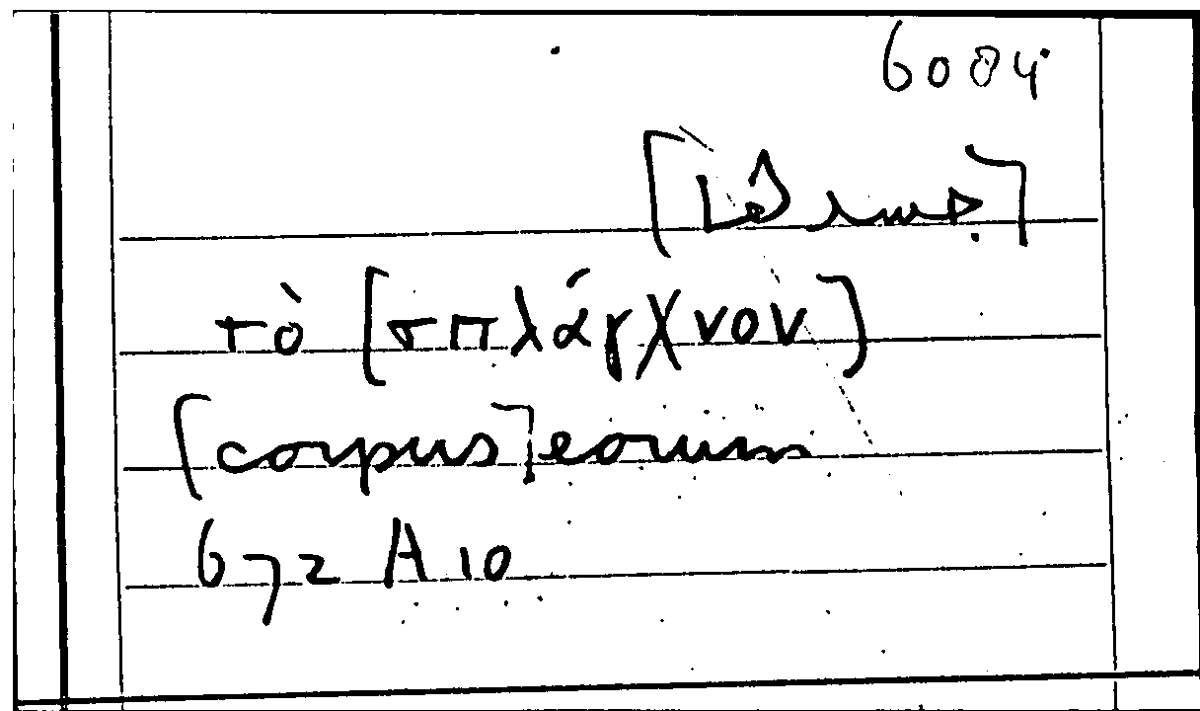 6004
τὸ [σπλάγχνον]
[corpus] eorum
672 A 10